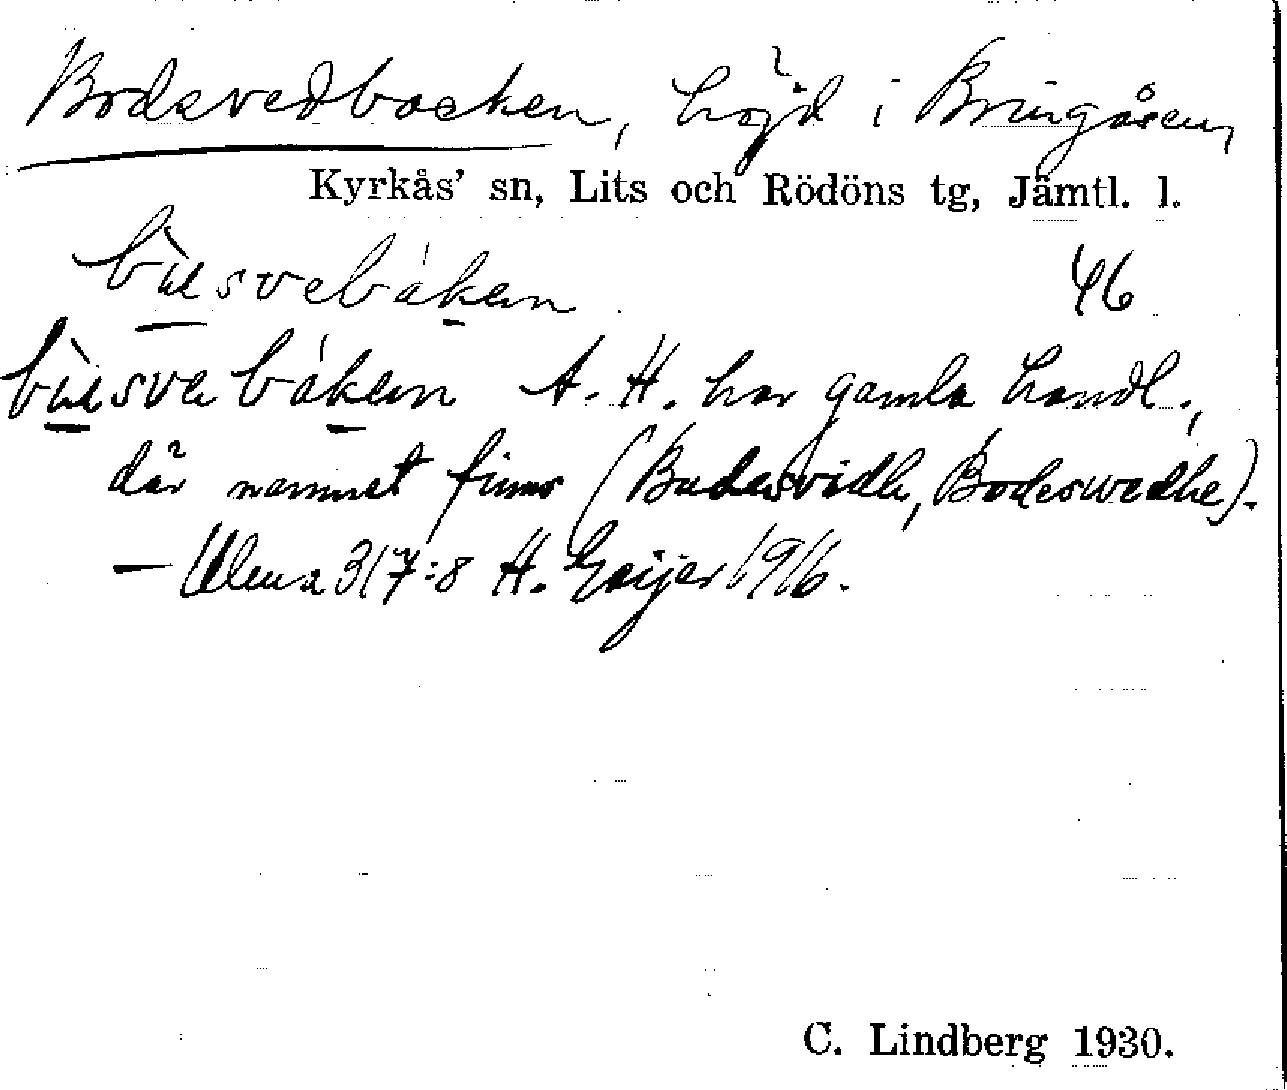 Bodsvedbacken, höjd i Bringåsen,
Kyrkås' sn, Lits och Rödöns tg, Jämtl. l.
bùsvebáken 46
bùsvebáken A. H. har gamla handl.,
där namnet finns (Badesvidh, Bodeswedhe).
— Ulma 317:8 H. Geijer 1916.
C. Lindberg 1930.